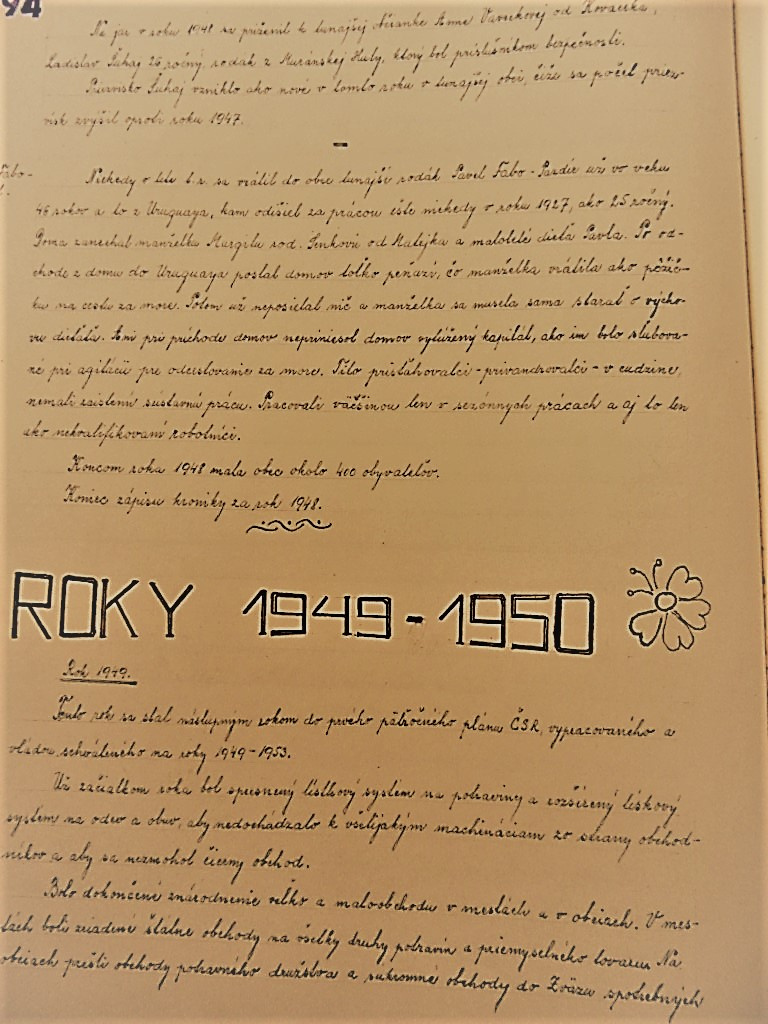 94
Na jar v roku 1948 sa priženil k tunajšej občianke Anne Vavrekovej od Kováčika,
Ladislav Šuhaj 26 ročný, rodák z Muránskej Huty, ktorý bol príslušníkom bezpečnosti.
Priezvisko Šuhaj vzniklo ako nové v tomto roku v tunajšej obci, čiže sa počet priez-
visk zvýšil oproti roku 1947.
Niekedy v lete t.r. sa vrátil do obce tunajší rodák Pavel Fabo - Pazdír už vo veku
46 rokov a to z Uruguaya, kam odišiel za prácou ešte niekedy v roku 1927, ako 25 ročný.
Doma zanechal manželku Margitu rod. Senkovú od Matejka a maloleté dieťa Pavla. Po od-
chode z domu do Uruguaya poslal domov toľko peňazí, čo manželka vrátila ako pôžič-
ku na cestu za more. Potom už neposielal nič a manželka sa musela sama starať o výcho-
vu dieťaťa. Ani pri príchode domov nepriniesol domov vytúžený kapitál, ako im bolo sľubova-
né pri agitácii pre odcestovanie za more. Títo prisťahovalci - privandrovalci - v cudzine,
nemali zaistenú sústavnú prácu. Pracovali väčšinou len v sezónnych prácach a aj to len
ako nekvalifikovaní robotníci.
Koncom roka 1948 mala obec okolo 400 obyvateľov.
Koniec zápisu kroniky za rok 1948.
ROKY 1949-1950
Rok 1949.
Tento rok sa stal nástupným rokom do prvého päťročného plánu ČSR, vypracovaného a
vládou schváleného na roky 1949-1953.
Už začiatkom roka bol spresnený lístkový systém na potraviny a rozšírený lískový
systém na odev a obuv, aby nedochádzalo k všelijakým machináciam zo strany obchod-
níkov a aby sa nezmohol čierny obchod.
Bolo dokončené znárodnenie veľko a maloobchodu v mestách a v obciach. V mes-
tách boli zriadené štátne obchody na všetky druhy potravín a priemyselného tovaru. Na
obciach prešli obchody potravného družstva a súkromné obchody do Zväzu spotrebných